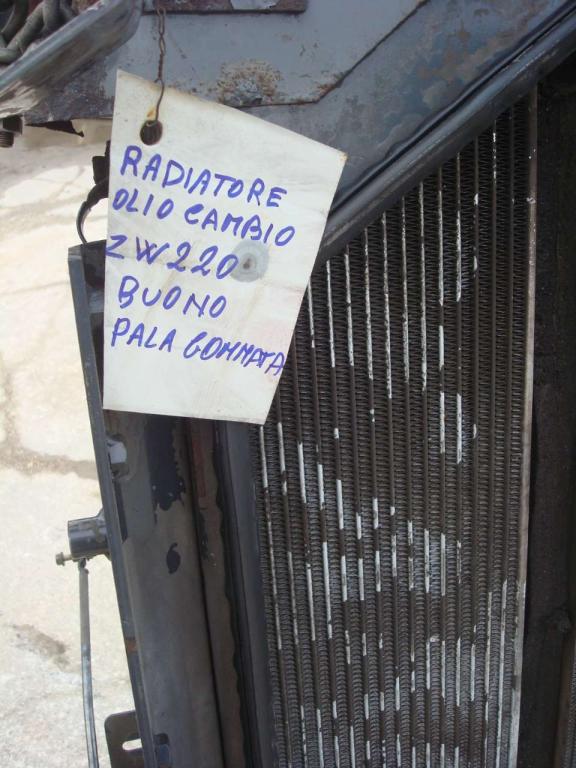 RADIATORE
OLIO CAMBIO
ZW220
BUONO
PALA GOMMATA